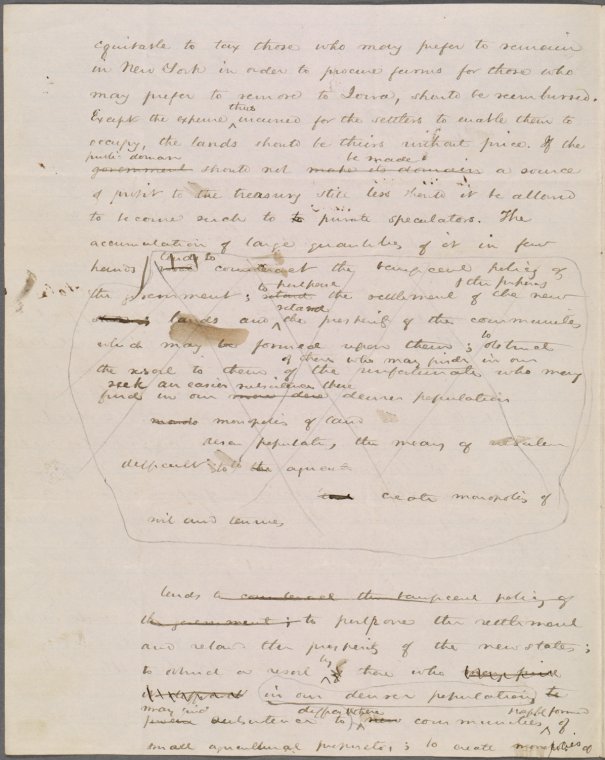 equitable to tax those who may prefer to remain
in New York in order to procure farms for those who
may prefer to remove to Iowa, should be reimbursed.
thus
Except the expense incurred for the settlers to enable them to
occupy, the lands should be theirs without price. If the
public domain be made
government should not make its domain a source
of profit to the treasury still less should it be allowed
to become such to to private speculators. The
accumulation of large quantities of it in few
tends to
hands counteract the beneficent policy of
to postpone
the government; retard the settlement of the new
retard
lands and the prosperity of the communities
to
which may be formed upon them; obstruct
of those who may find in our
the resort to them of the unfortunate who may
seek an easier subsistence there
find in our more dense denser population
monopolies of land
populate, the means of
difficult to the
create monopolies of
tends to counteract the beneficent policy of
the government; to postpone the settlement
and retard the prosperity of the new states;
by
to obstruct a resort those who
in our denser population, the
may find difficult where
subsistence to new communities of
small agricultural proprietors; to create monopolies of